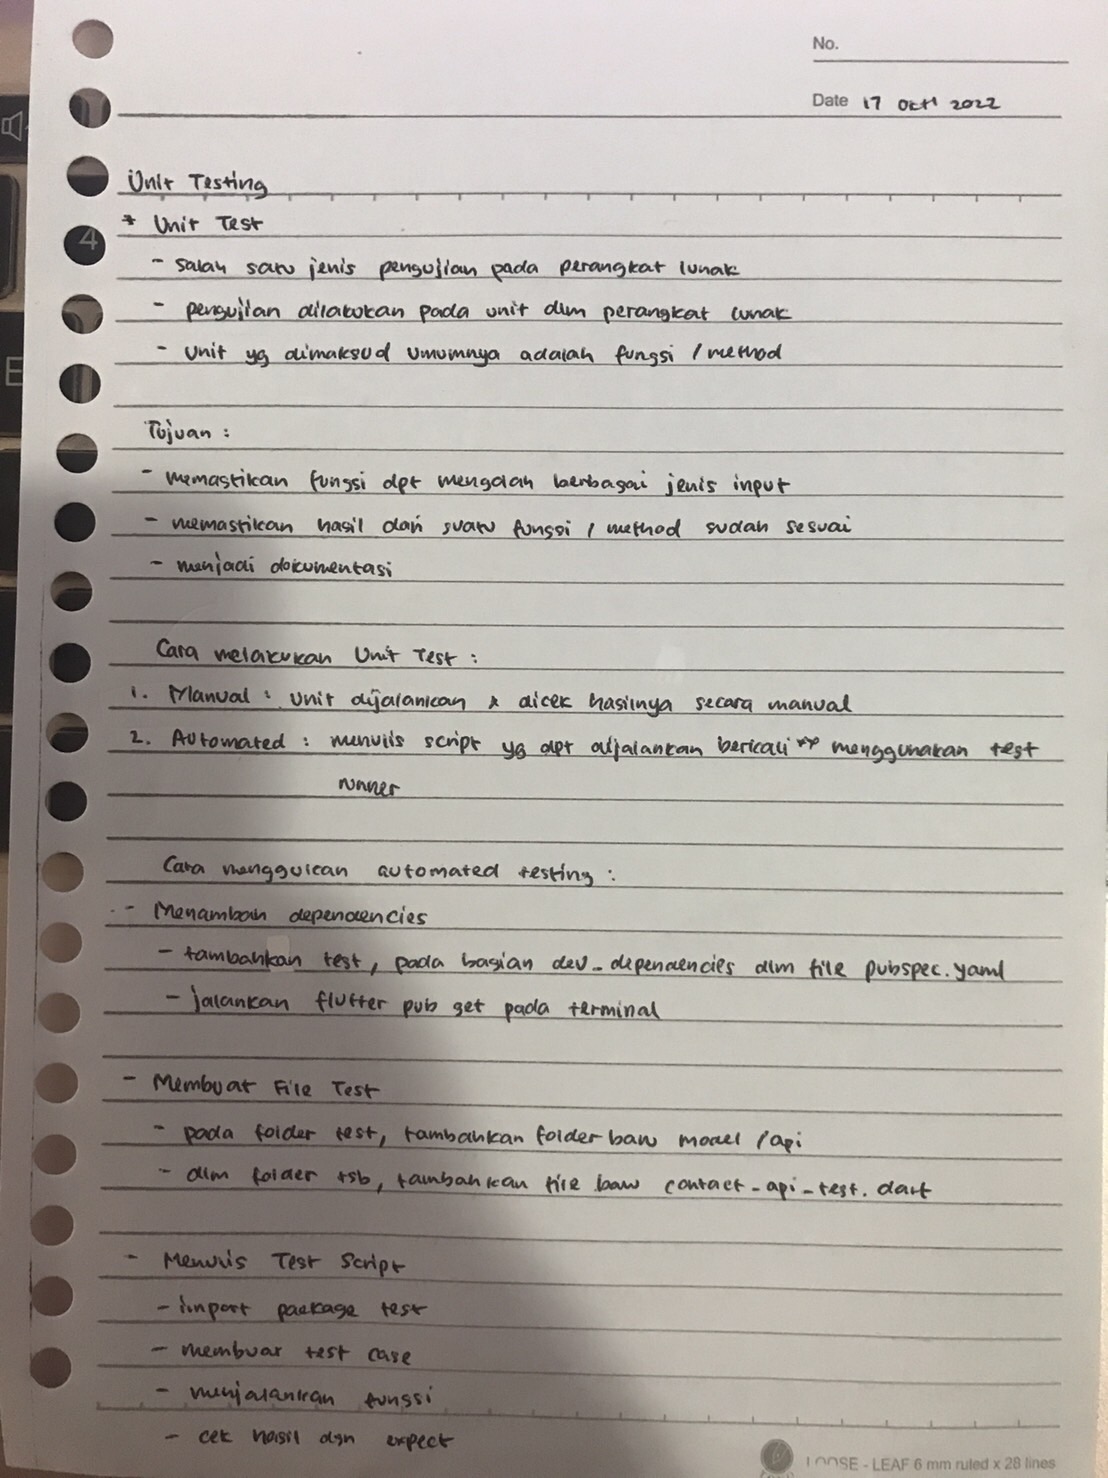 No.
Date 17 Okt 2022
Unit Testing
* Unit Test
- Salah satu jenis pengujian pada perangkat lunak
- pengujian dilakukan pada unit dlm perangkat lunak
- Unit yg dimaksud umumnya adalah fungsi / method
Tujuan :
- memastikan fungsi dpt mengolah berbagai jenis input
- memastikan hasil dari suatu fungsi / method sudah sesuai
- menjadi dokumentasi
Cara melakukan Unit Test :
1. Manual : Unit dijalankan & dicek hasilnya secara manual
2. Automated : menulis script yg dpt dijalankan berkali menggunakan test
runner
Cara menggunakan automated testing :
- Menambah dependencies
- tambahkan test, pada bagian dev_dependencies dlm file pubspec.yaml
- jalankan flutter pub get pada terminal
- Membuat File Test
- pada folder test, tambahkan folder baru model / api
- dlm folder tsb, tambahkan file baru contact_api_test.dart
- Menulis Test Script
- import package test
- membuat test case
- menjalankan fungsi
- cek hasil dgn expect
4
E
LOOSE - LEAF 6 mm ruled x 28 lines